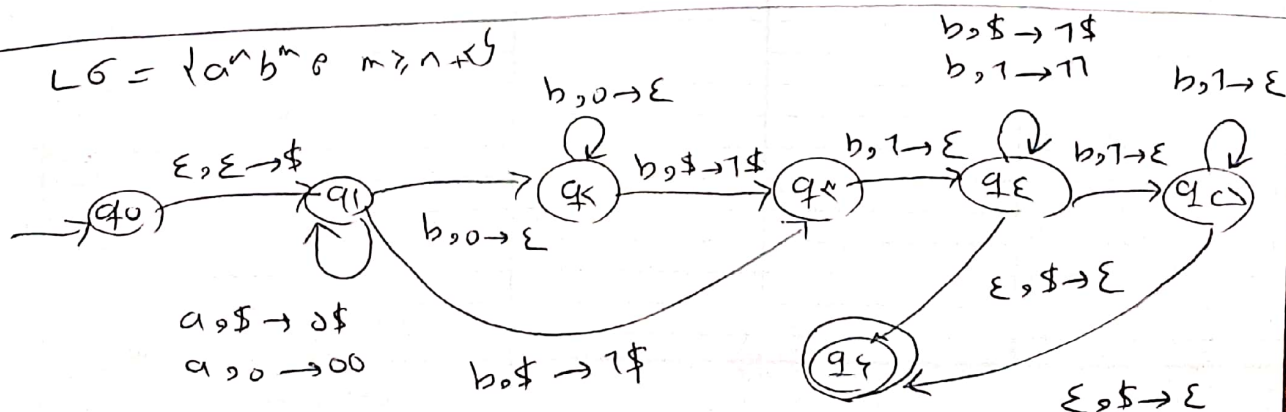 L6 = {a^n b^m : m ≥ n+2}
b, $ → 1$
b, 1 → 11
b, 0 → ε
b, 1 → ε
ε, ε → $
b, $ → 1$
b, 1 → ε
b, 1 → ε
q0
q1
q۲
q۳
q٤
q۵
b, 0 → ε
ε, $ → ε
a, $ → 0$
a, 0 → 00
b, $ → 1$
q۶
ε, $ → ε